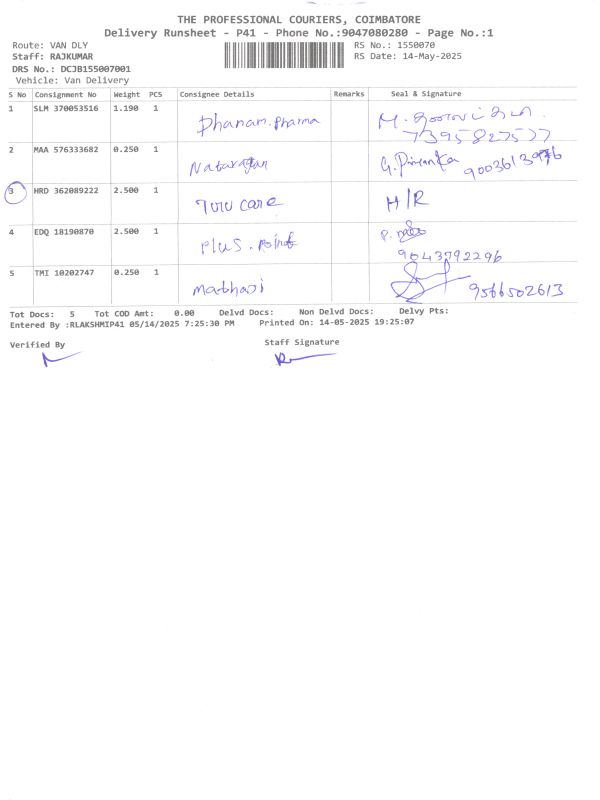 THE PROFESSIONAL COURIERS, COIMBATORE
Delivery Runsheet - P41 - Phone No.:9047080280 - Page No.:1
Route: VAN DLY RS No.: 1550070
Staff: RAJKUMAR RS Date: 14-May-2025
DRS No.: DCJB155007001
Vehicle: Van Delivery
S No Consignment No Weight PCS Consignee Details Remarks Seal & Signature
1 SLM 370053516 1.190 1 Dhanam. Pharma M.
7395827577
2 MAA 576333682 0.250 1 Natarajan G. Priyanka 9003613976
3 HRD 362089222 2.500 1 TURU care H/R
4 EDQ 18190870 2.500 1 PLUS. Point P.
9043792296
5 TMI 10202747 0.250 1 9566502613
Tot Docs: 5 Tot COD Amt: 0.00 Delvd Docs: Non Delvd Docs: Delvy Pts:
Entered By :RLAKSHMIP41 05/14/2025 7:25:30 PM Printed On: 14-05-2025 19:25:07
Verified By Staff Signature